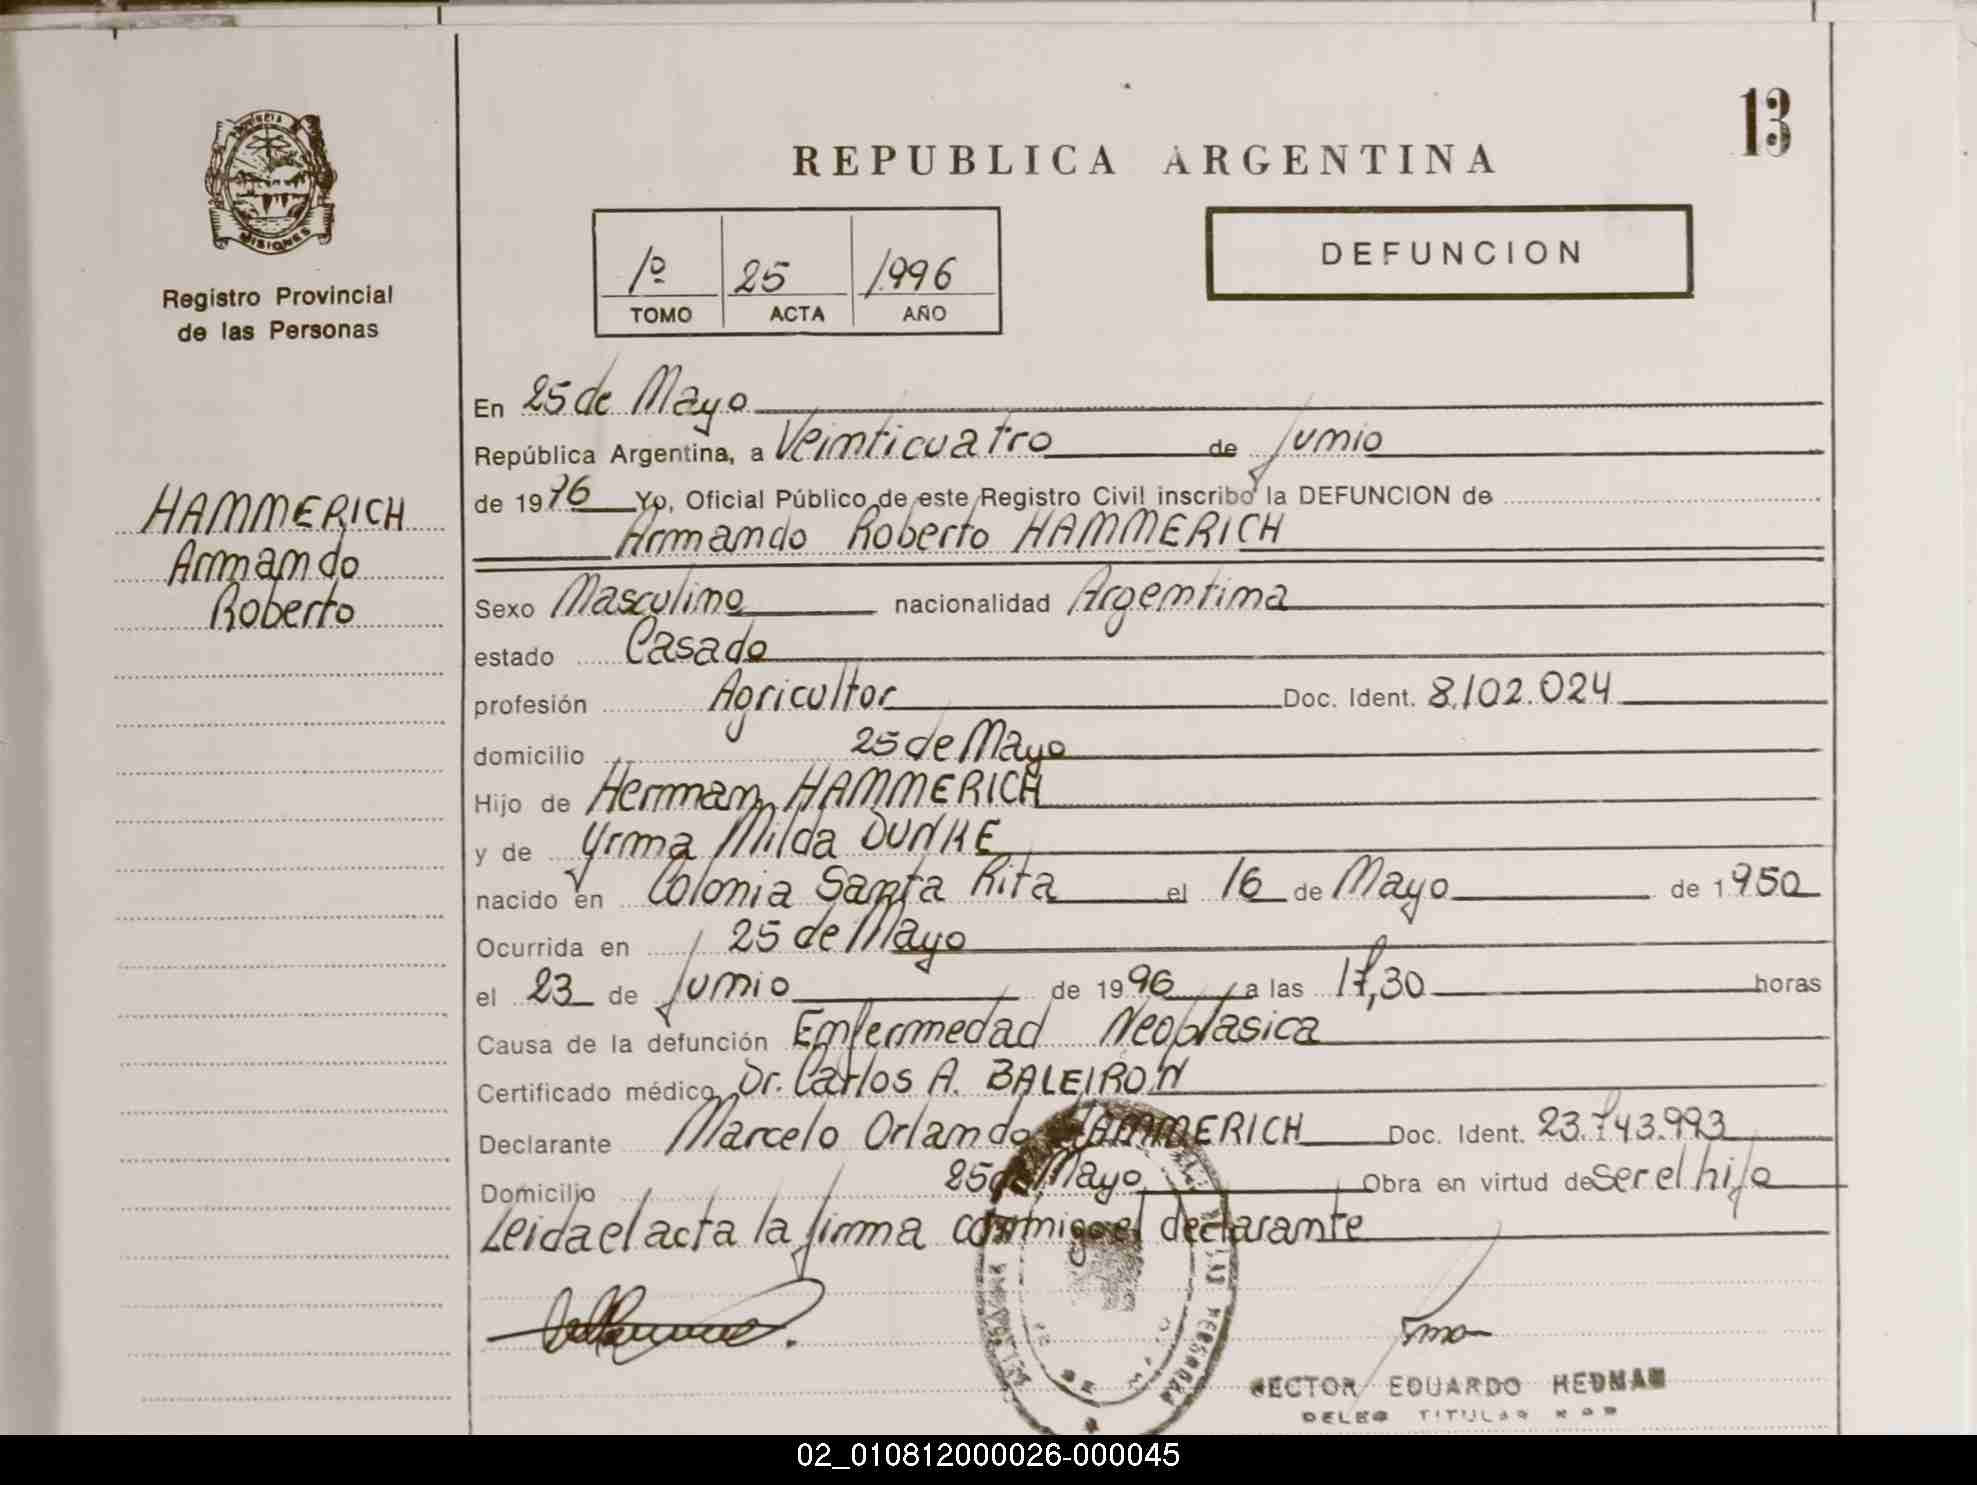 13
REPUBLICA ARGENTINA
MISIONES
Registro Provincial
de las Personas
1º 25 1996
TOMO ACTA AÑO
DEFUNCION
HAMMERICH
Armando
Roberto
En 25 de Mayo
República Argentina, a Veinticuatro de Junio
de 1996 Yo, Oficial Público de este Registro Civil inscribo la DEFUNCION de
Armando Roberto HAMMERICH
Sexo Masculino nacionalidad Argentina
estado Casado
profesión Agricultor Doc. Ident. 8.102.024
domicilio 25 de Mayo
Hijo de Herman HAMMERICH
y de Yrma Milda DUNKE
nacido en Colonia Santa Rita el 16 de Mayo de 1950
Ocurrida en 25 de Mayo
el 23 de Junio de 1996 a las 17,30 horas
Causa de la defunción Enfermedad Neoplasica
Certificado médico Dr. Carlos A. BALEIRON
Declarante Marcelo Orlando HAMMERICH Doc. Ident. 23.743.993
Domicilio 25 de Mayo Obra en virtud de ser el hijo
Leida el acta la firma conmigo el declarante
HECTOR EDUARDO HEDMAN
TITULAR
02_010812000026-000045